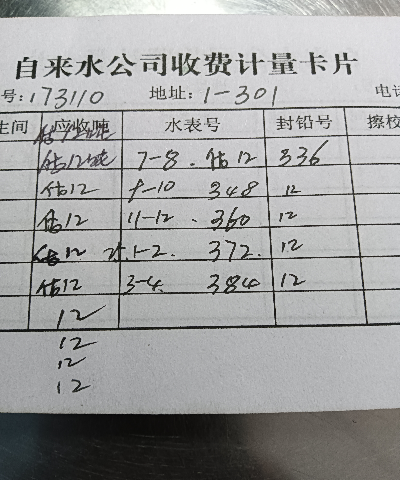 自来水公司收费计量卡片
号:173110 地址:1-301 电话
生间 应收吨 水表号 封铅号 擦校
估12吨
估12吨 7-8. 估12 336
估12 9-10 348 12
估12 11-12 360 12
估12 1-2. 372. 12
估12 3-4. 384 12
12
12
12
12